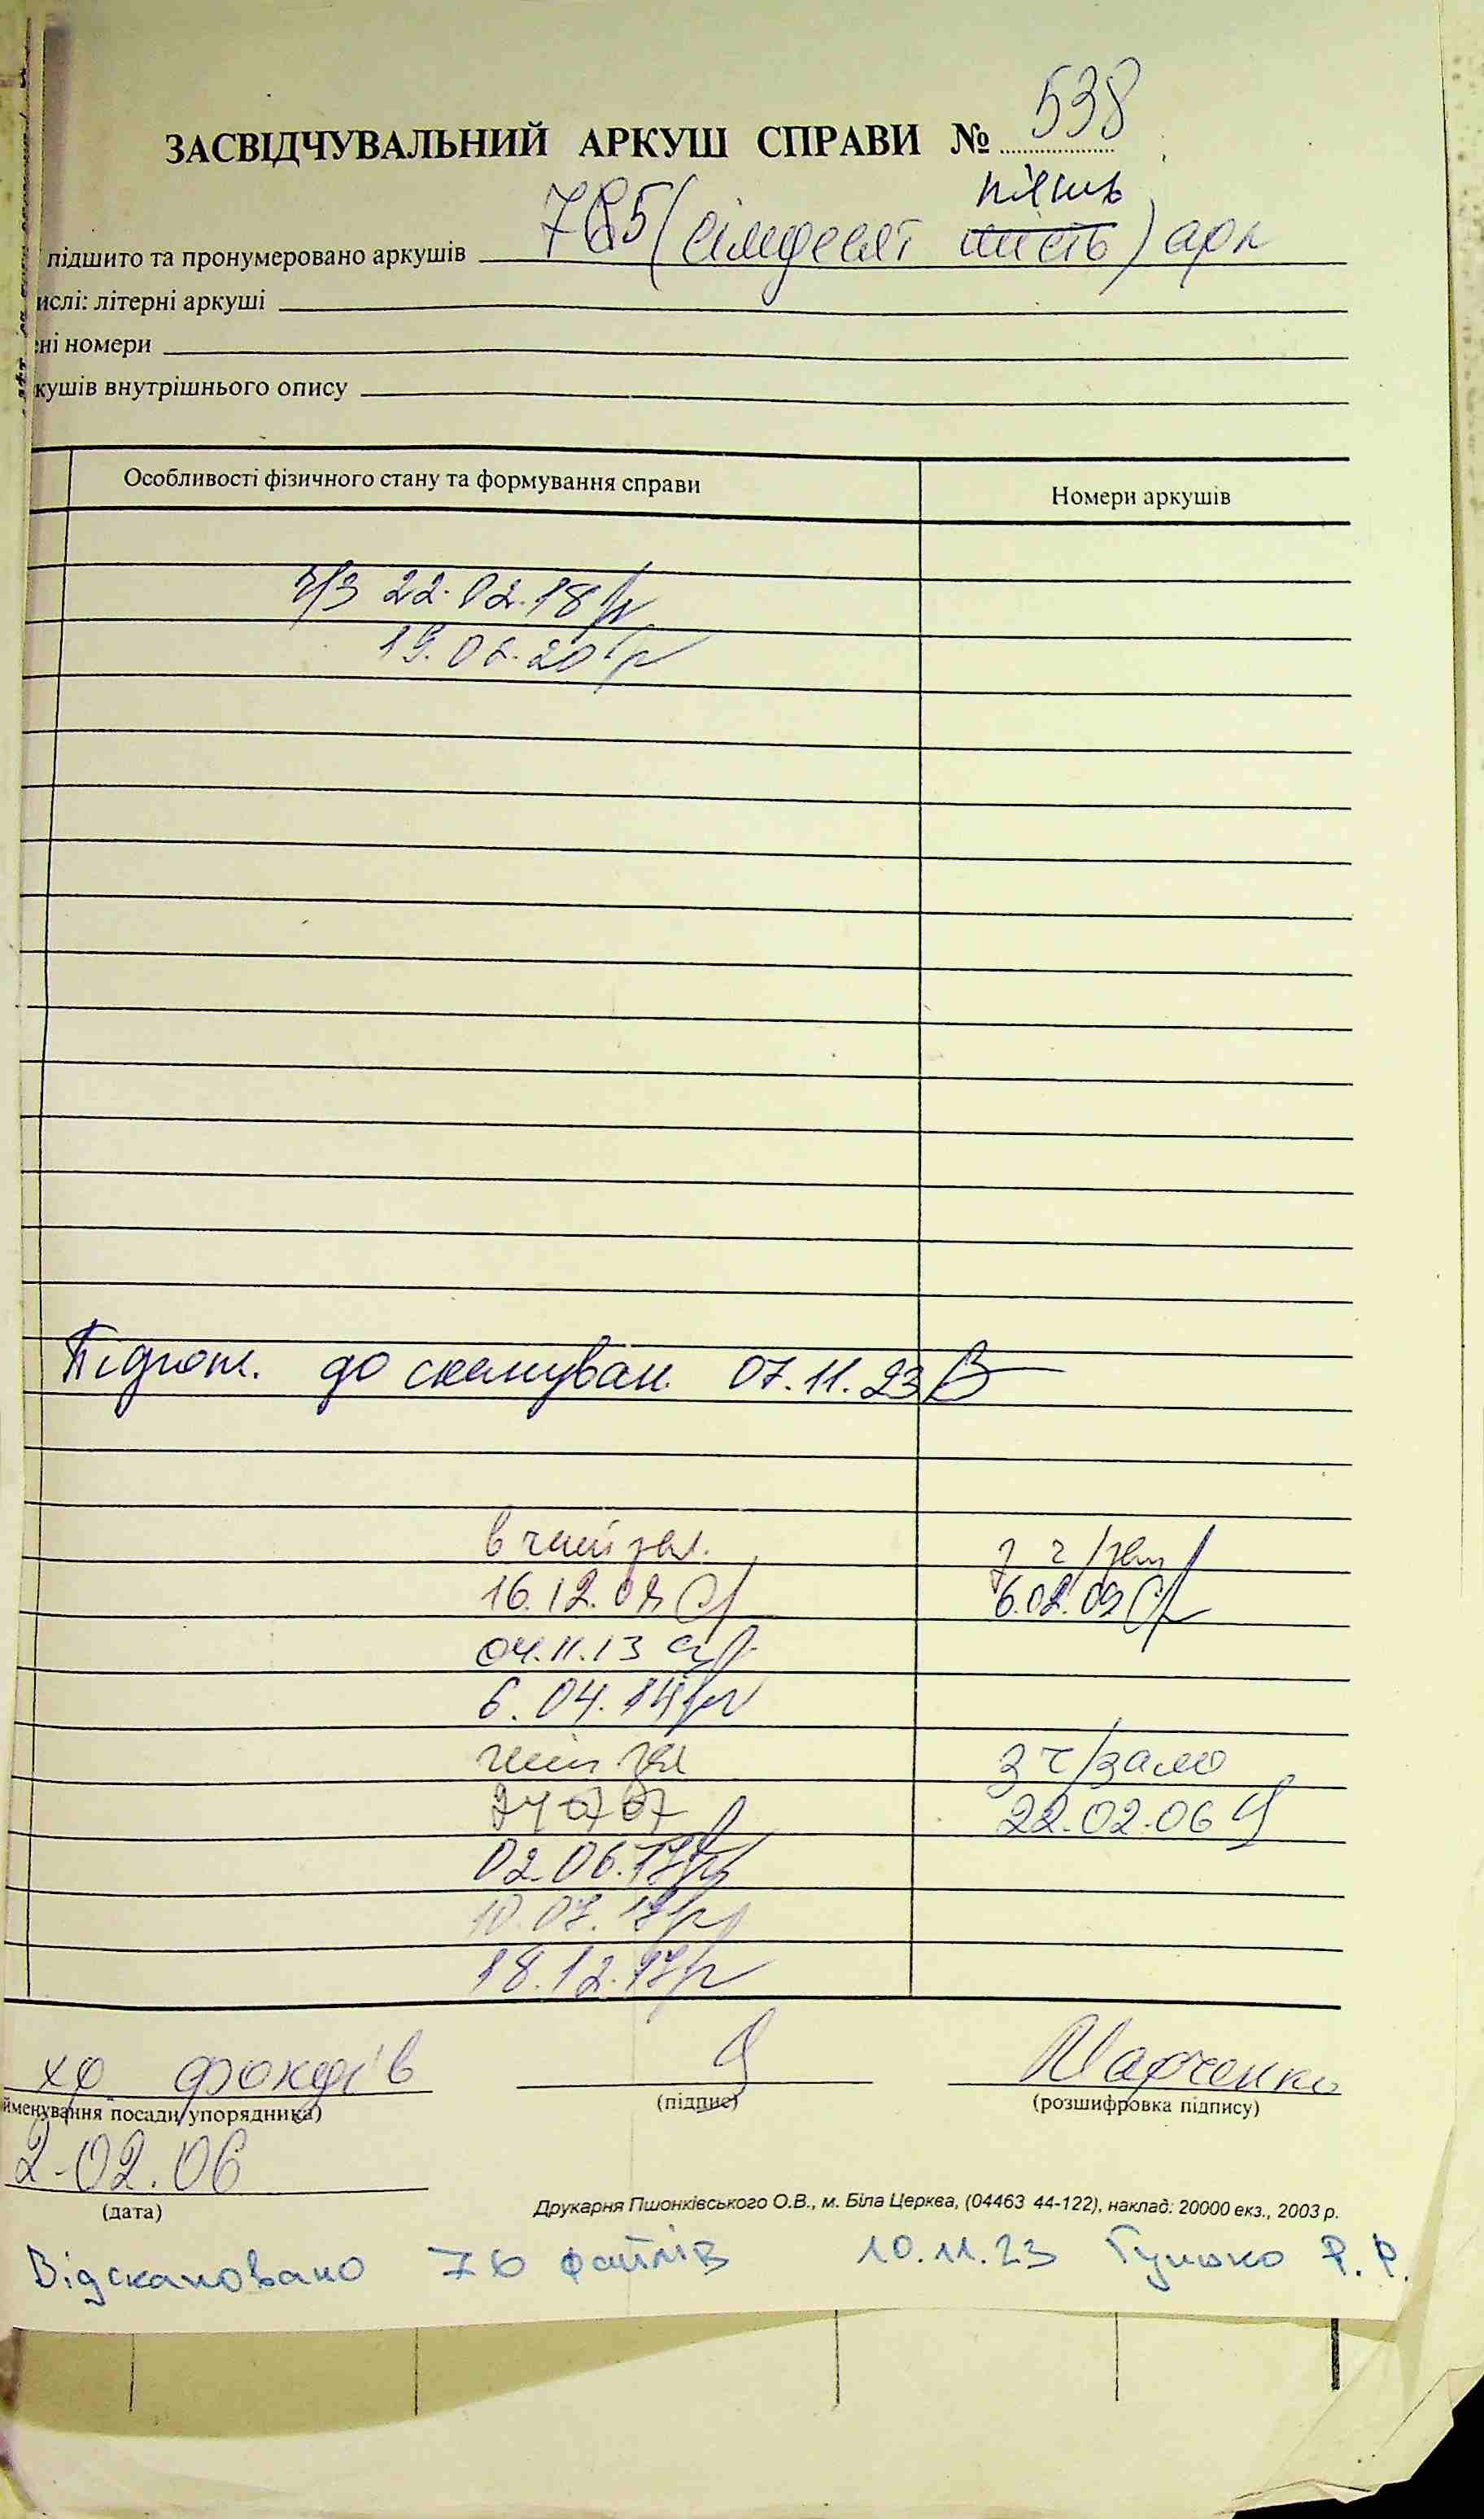 ЗАСВІДЧУВАЛЬНИЙ АРКУШ СПРАВИ № 538
пʼять
підшито та пронумеровано аркушів 75 (сімдесят шість) арк
ислі: літерні аркуші
ні номери
кушів внутрішнього опису
Особливості фізичного стану та формування справи Номери аркушів
ч/з 22.02.18
19.06.20
Підгот. до скануван. 07.11.23
в чит зал. з ч/зали
16.12.08 6.02.09
04.11.13
6.04.14
чит зал з ч/залю
24 07 07 22.02.06
02.06.17
10.07.17
18.12.17
хр фондів Марченко
йменування посади упорядника) (підпис) (розшифровка підпису)
2.02.06
(дата) Друкарня Пшонківського О.В., м. Біла Церква, (04463 44-122), наклад: 20000 екз., 2003 р.
Відскановано 76 файлів 10.11.23 Гунько Р. Р.